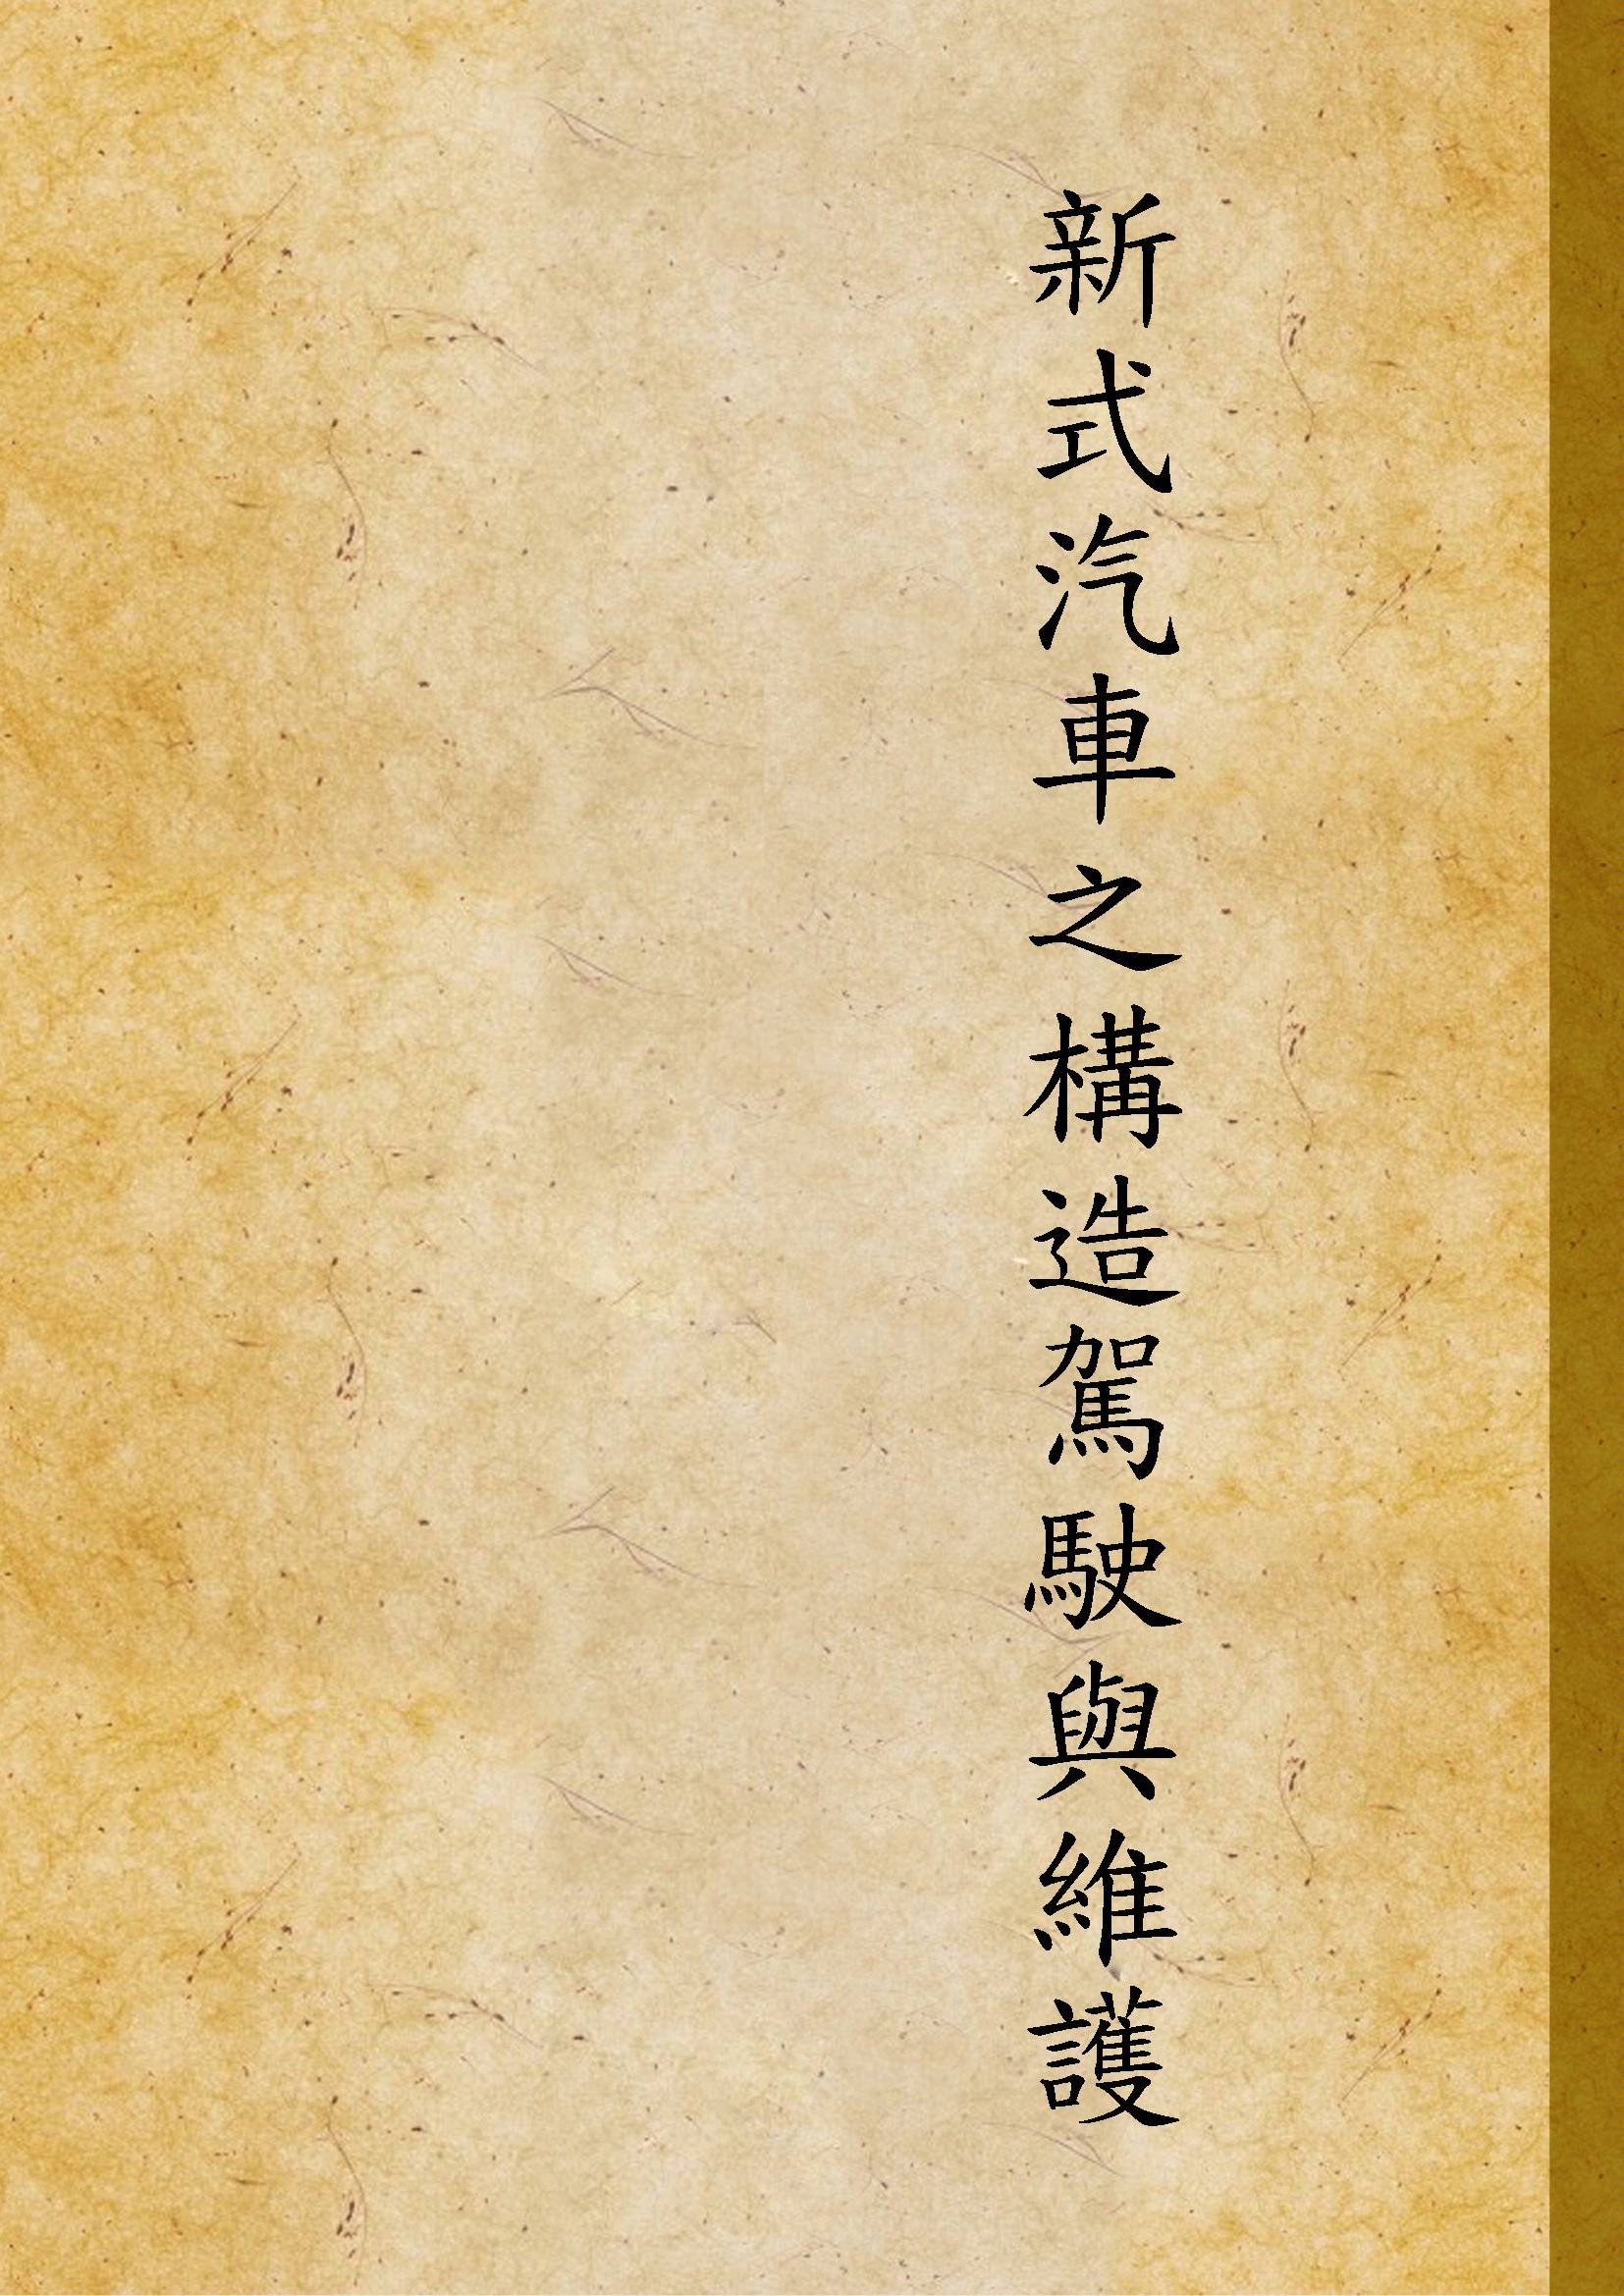 新式汽車之構造駕駛與維護